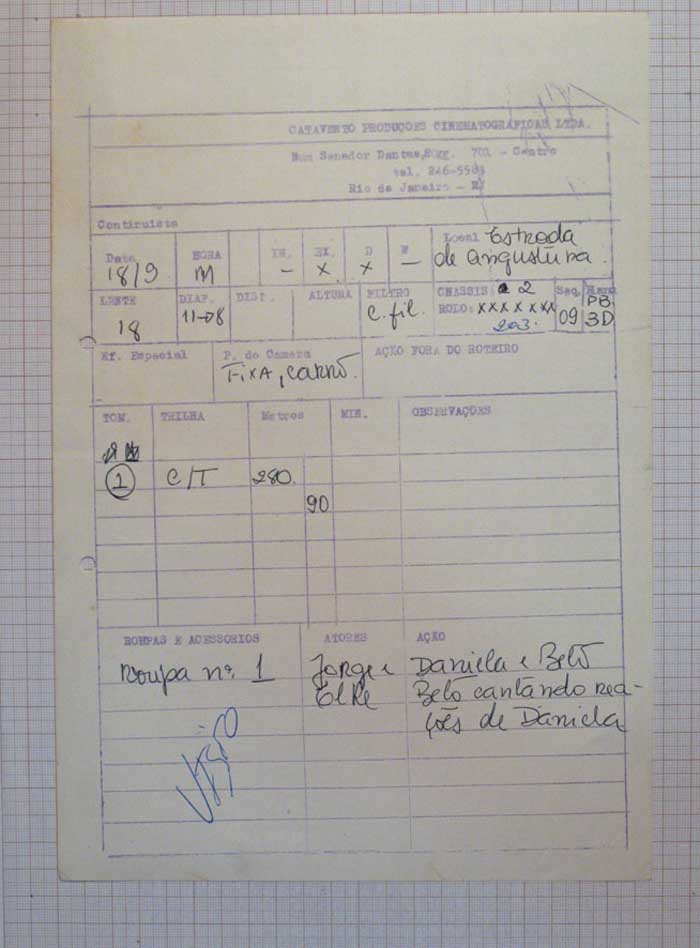 CATAVENTO PRODUÇOES CINEMATOGRÁFICAS LTDA.
Rua Senador Dantas, 701 - Centro
tel. 246-5583
Rio de Janeiro - RJ
Continuista
Data 18/9
HORA M
IN. -
EX. X
D X
N -
Local Estrada de angustura.
LENTE 18
DIAF. 11-08
DIST.
ALTURA
FILTRO c. fil.
CHASSIS: 2
ROLO: XXXXXXX 203.
Seq. 09
PB 3D
Ef. Especial
P. de Camera Fixa, carro.
AÇÃO FORA DO ROTEIRO
TOM. TRILHA Metros MIN. OBSERVAÇÕES
1 C/T 280.
90
ROUPAS E ACESSORIOS ATORES AÇÃO
roupa nº. 1 Jorge e Daniela e Betô
Elke Betô cantando rea-
ções de Daniela